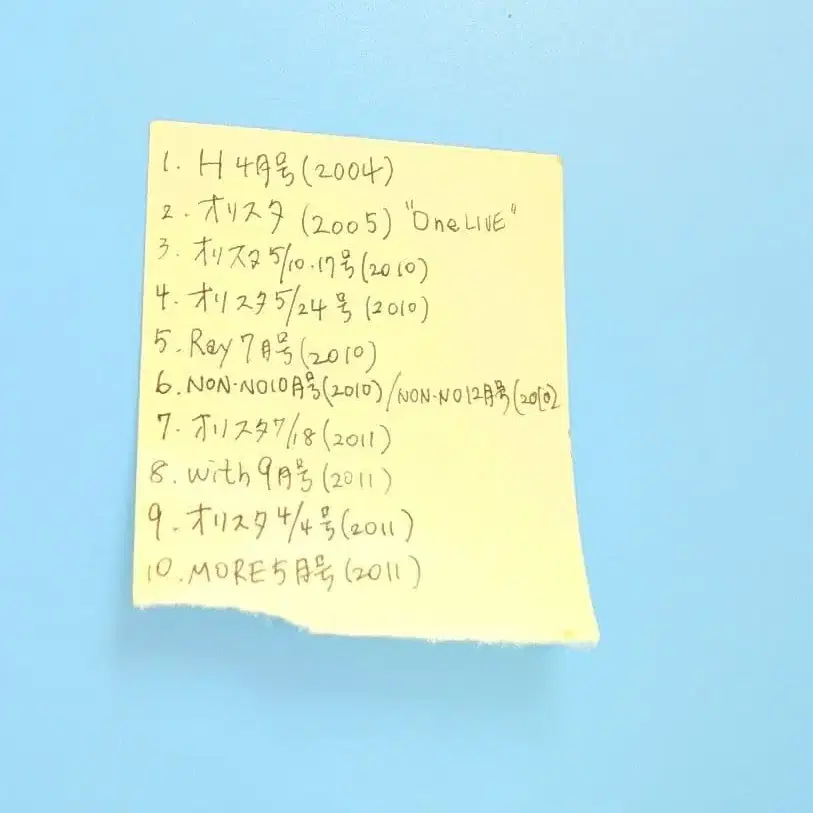 1. H 4月号(2004)
2. オリスタ (2005) "One LIVE"
3. オリスタ 5/10.17号(2010)
4. オリスタ 5/24号 (2010)
5. Ray 7月号(2010)
6. NON-NO10月号(2010)/NON-NO12月号(2010)
7. オリスタ7/18(2011)
8. with 9月号(2011)
9. オリスタ 4/4号(2011)
10. MORE 5月号(2011)